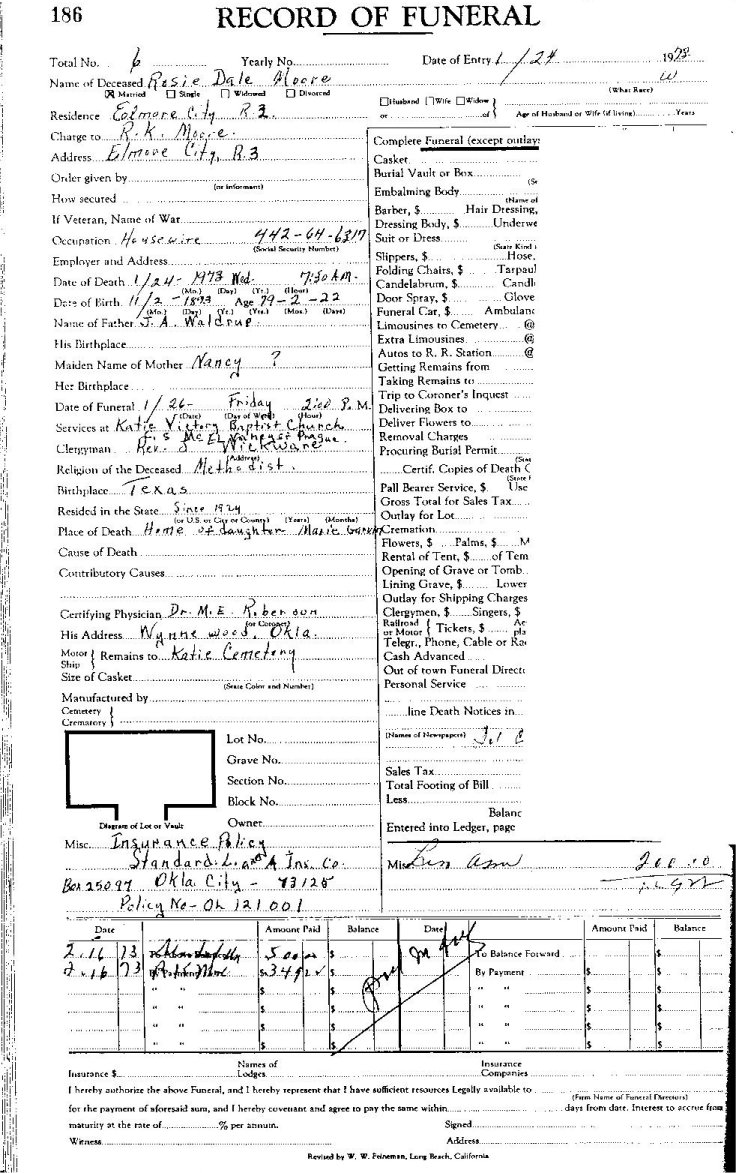 186
RECORD OF FUNERAL
Total No. 6 Yearly No. Date of Entry 1/24 1973
Name of Deceased Rosie Dale Moore W
(What Race)
Married Single Widowed Divorced
Husband Wife Widow
or of Age of Husband or Wife (if living) Years
Residence Eolmore City R.3
Charge to R.K. Moore.
Address Elmore City, R.3
Order given by
(or informant)
How secured
If Veteran, Name of War
Occupation Housewire 442-64-6317
(Social Security Number)
Employer and Address
Date of Death 1/24-1973 Wed. 7:50 AM.
(Mo.) (Day) (Yr.) (Hour)
Date of Birth 11/2-1893 Age 79-2-22
(Mo.) (Day) (Yr.) (Yrs.) (Mos.) (Days)
Name of Father J. A. Waldrup
His Birthplace
Maiden Name of Mother Nancy ?
Her Birthplace
Date of Funeral 1/26- Friday 2:00 P.M.
(Date) (Day of Week) (Hour)
Services at Katie Victory Baptist Church
Clergyman Rev. Wickware
(Address)
Religion of the Deceased Methodist.
Birthplace Texas
Resided in the State Since 1924
(or U.S. or City or County) (Years) (Months)
Place of Death Home of daughter Marie
Cause of Death
Contributory Causes
Certifying Physician Dr. M.E. Roberson
(or Coroner)
His Address Wynnewood, Okla.
Motor
Ship
Remains to Katie Cemetery
Size of Casket
(State Color and Number)
Manufactured by
Cemetery
Crematory
Lot No.
Grave No.
Section No.
Block No.
Owner
Diagram of Lot or Vault
Misc. Insurance Policy
Standard L. and A Ins. Co.
Box 25097 Okla. City - 73125
Policy No-OL 121001
Complete Funeral (except outlay
Casket
Burial Vault or Box
(St
Embalming Body
(Name of
Barber, $ Hair Dressing,
Dressing Body, $ Underwe
Suit or Dress
(State Kind
Slippers, $ Hose.
Folding Chairs, $ Tarpaul
Candelabrum, $ Candl
Door Spray, $ Glove
Funeral Car, $ Ambulanc
Limousines to Cemetery @
Extra Limousines @
Autos to R. R. Station @
Getting Remains from
Taking Remains to
Trip to Coroner's Inquest
Delivering Box to
Deliver Flowers to
Removal Charges
Procuring Burial Permit
(State
Certif. Copies of Death C
(State
Pall Bearer Service, $ Use
Gross Total for Sales Tax
Outlay for Lot
Cremation
Flowers, $ Palms, $ M
Rental of Tent, $ of Tem
Opening of Grave or Tomb
Lining Grave, $ Lower
Outlay for Shipping Charges
Clergymen, $ Singers, $
Railroad
or Motor
Tickets, $
Ae
pla
Telegr., Phone, Cable or Ra
Cash Advanced
Out of town Funeral Directo
Personal Service
line Death Notices in
(Names of Newspapers)
Sales Tax
Total Footing of Bill
Less
Balanc
Entered into Ledger, page
Misc
Date Amount Paid Balance Date Amount Paid Balance
2 16 73 $ To Balance Forward $ $
2 16 73 $ By Payment $ $
" " $ $ " " $ $
" " $ $ " " $ $
" " $ $ " " $ $
" " $ $ " " $ $
Insurance $ Names of Lodges Insurance Companies
I hereby authorize the above Funeral, and I hereby represent that I have sufficient resources Legally available to
(Firm Name of Funeral Directors)
for the payment of aforesaid sum, and I hereby covenant and agree to pay the same within days from date. Interest to accrue from
maturity at the rate of % per annum. Signed
Witness Address
Revised by W. W. Feineman, Long Beach, California